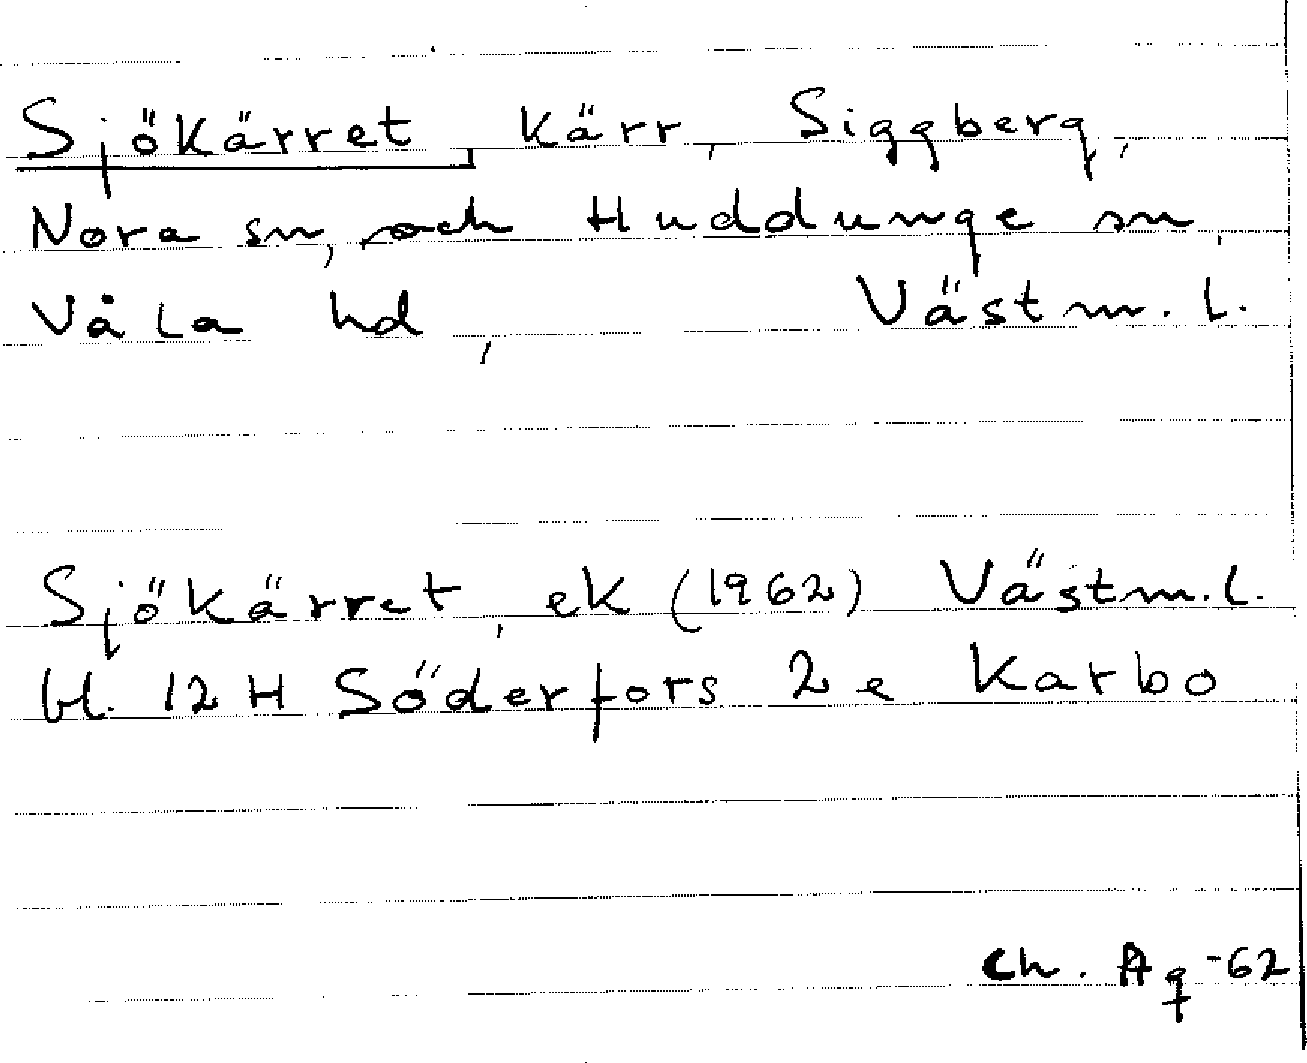 Sjökärret, kärr, Siggberg,
Nora sn, och Huddunge sn,
Våla hd, Västm. l.
Sjökärret, ek (1962) Västm. l.
bl. 12 H Söderfors 2 e Karbo
Ch. Ag -62